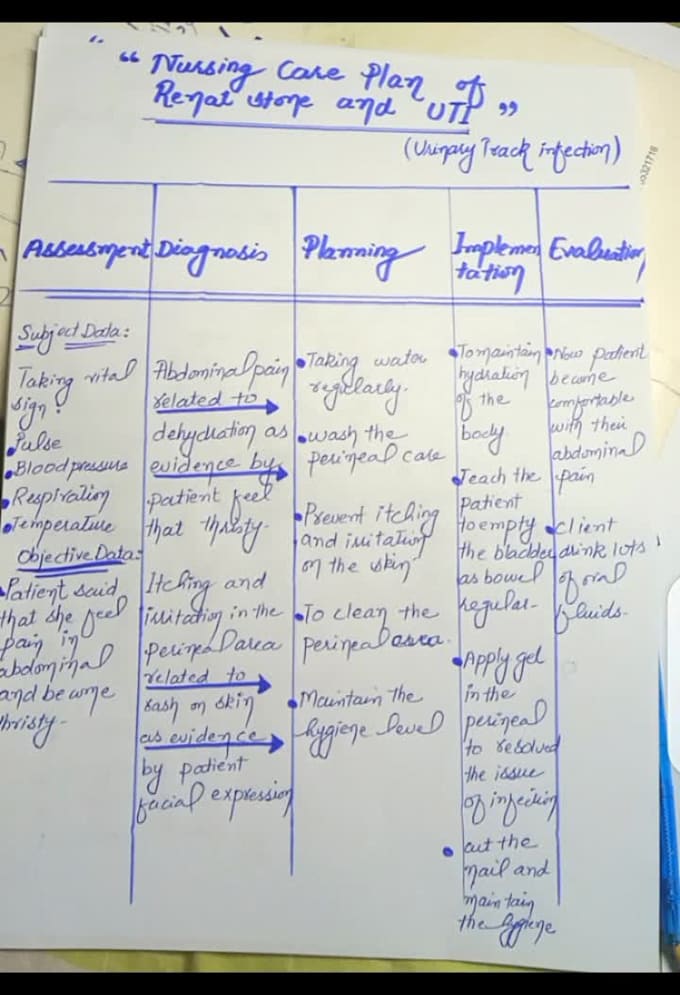 “ Nursing Care Plan of
Renal stone and UTI ”
(Urinary Track infection)
Assessment
Diagnosis
Planning
Implemen
tation
Evaluation
Subject Data:
Taking vital
sign:
• Pulse
• Blood pressure
• Respiration
• Temperature
Objective Data:
• Patient said
that she feel
pain in
abdominal
and become
thristy-
Abdominal pain
related to
dehydration as
evidence by
patient feel
that thristy-
Itching and
irritation in the
perineal area
related to
rash on skin
as evidence
by patient
facial expression
• Taking water
regularly.
• wash the
perineal care
• Prevent itching
and irritation
on the skin
• To clean the
perineal area.
• Maintain the
hygiene level
• To maintain
hydration
of the
body
• Teach the
patient
to empty
the bladder
as bowel
regular-
• Apply gel
in the
perineal
to resolved
the issue
of infection
• cut the
nail and
maintain
the hygiene
• Now patient
become
comfortable
with their
abdominal
pain
• client
drink lots
of oral
fluids-